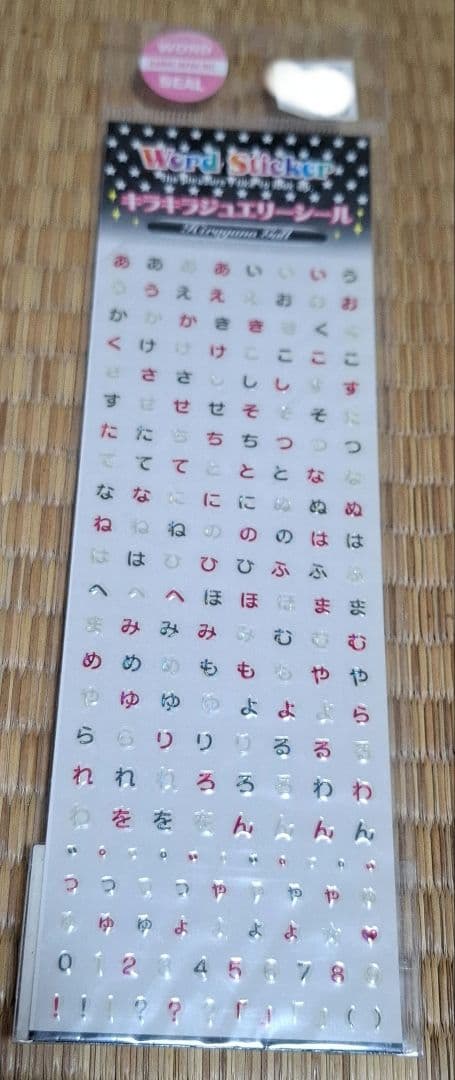 WORD
SEAL
Word Sticker
キラキラジュエリーシール
あ あ あ あ い い い う
う う え え え お お お
か か か き き き く く
く け け け こ こ こ こ
さ さ さ し し し す す
す せ せ せ そ そ そ た
た た ち ち ち つ つ つ
て て て と と と な な
な な に に に ぬ ぬ ぬ
ね ね ね の の の は は
は は ひ ひ ひ ふ ふ ふ
へ へ へ ほ ほ ほ ま ま
ま み み み み む む む
め め め も も も や や
や ゆ ゆ ゆ よ よ よ ら
ら ら り り り る る る
れ れ れ ろ ろ ろ わ わ
わ を を を ん ん ん ん
っ っ っ っ ゃ ゃ ゃ ゃ ゅ
ゅ ゅ ゅ ょ ょ ょ ょ ☆ ♥
0 1 2 3 4 5 6 7 8 9
! ! ! ? ? ? 「 」 「 」 ( )